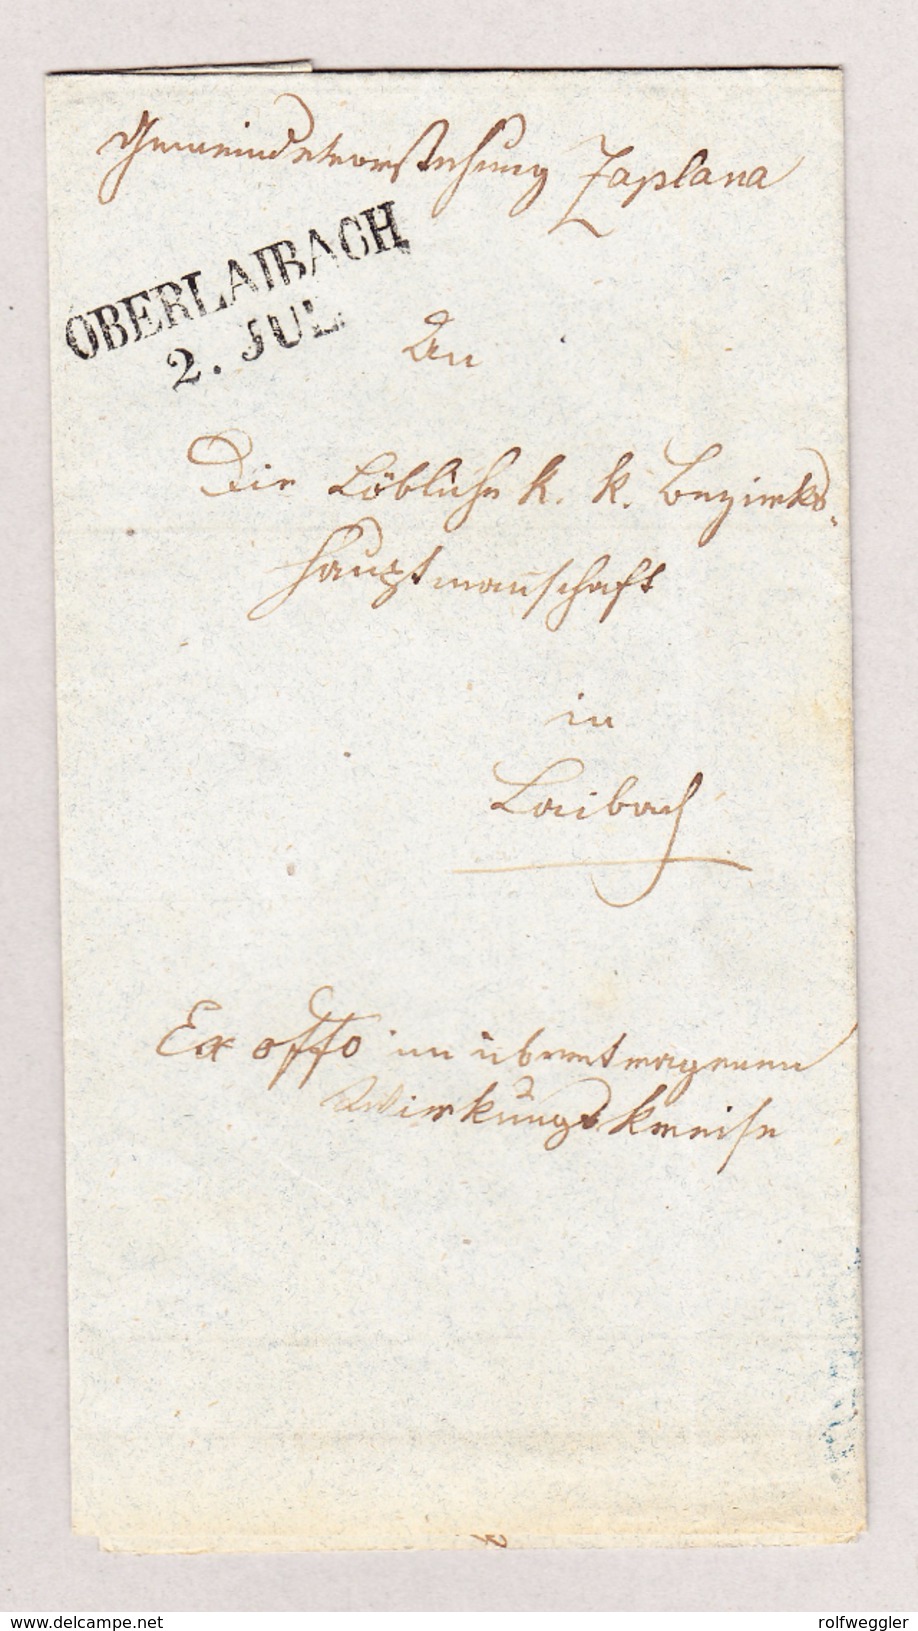 Gemeindevorstehung Zaplana
OBERLAIBACH
2. JUL.
An
Die Löbliche k. k. Bezirks-
hauptmanschaft
in
Laibach
Ex offo im übertragenen
Wirkungskreise
delcampe.net
rolfweggler